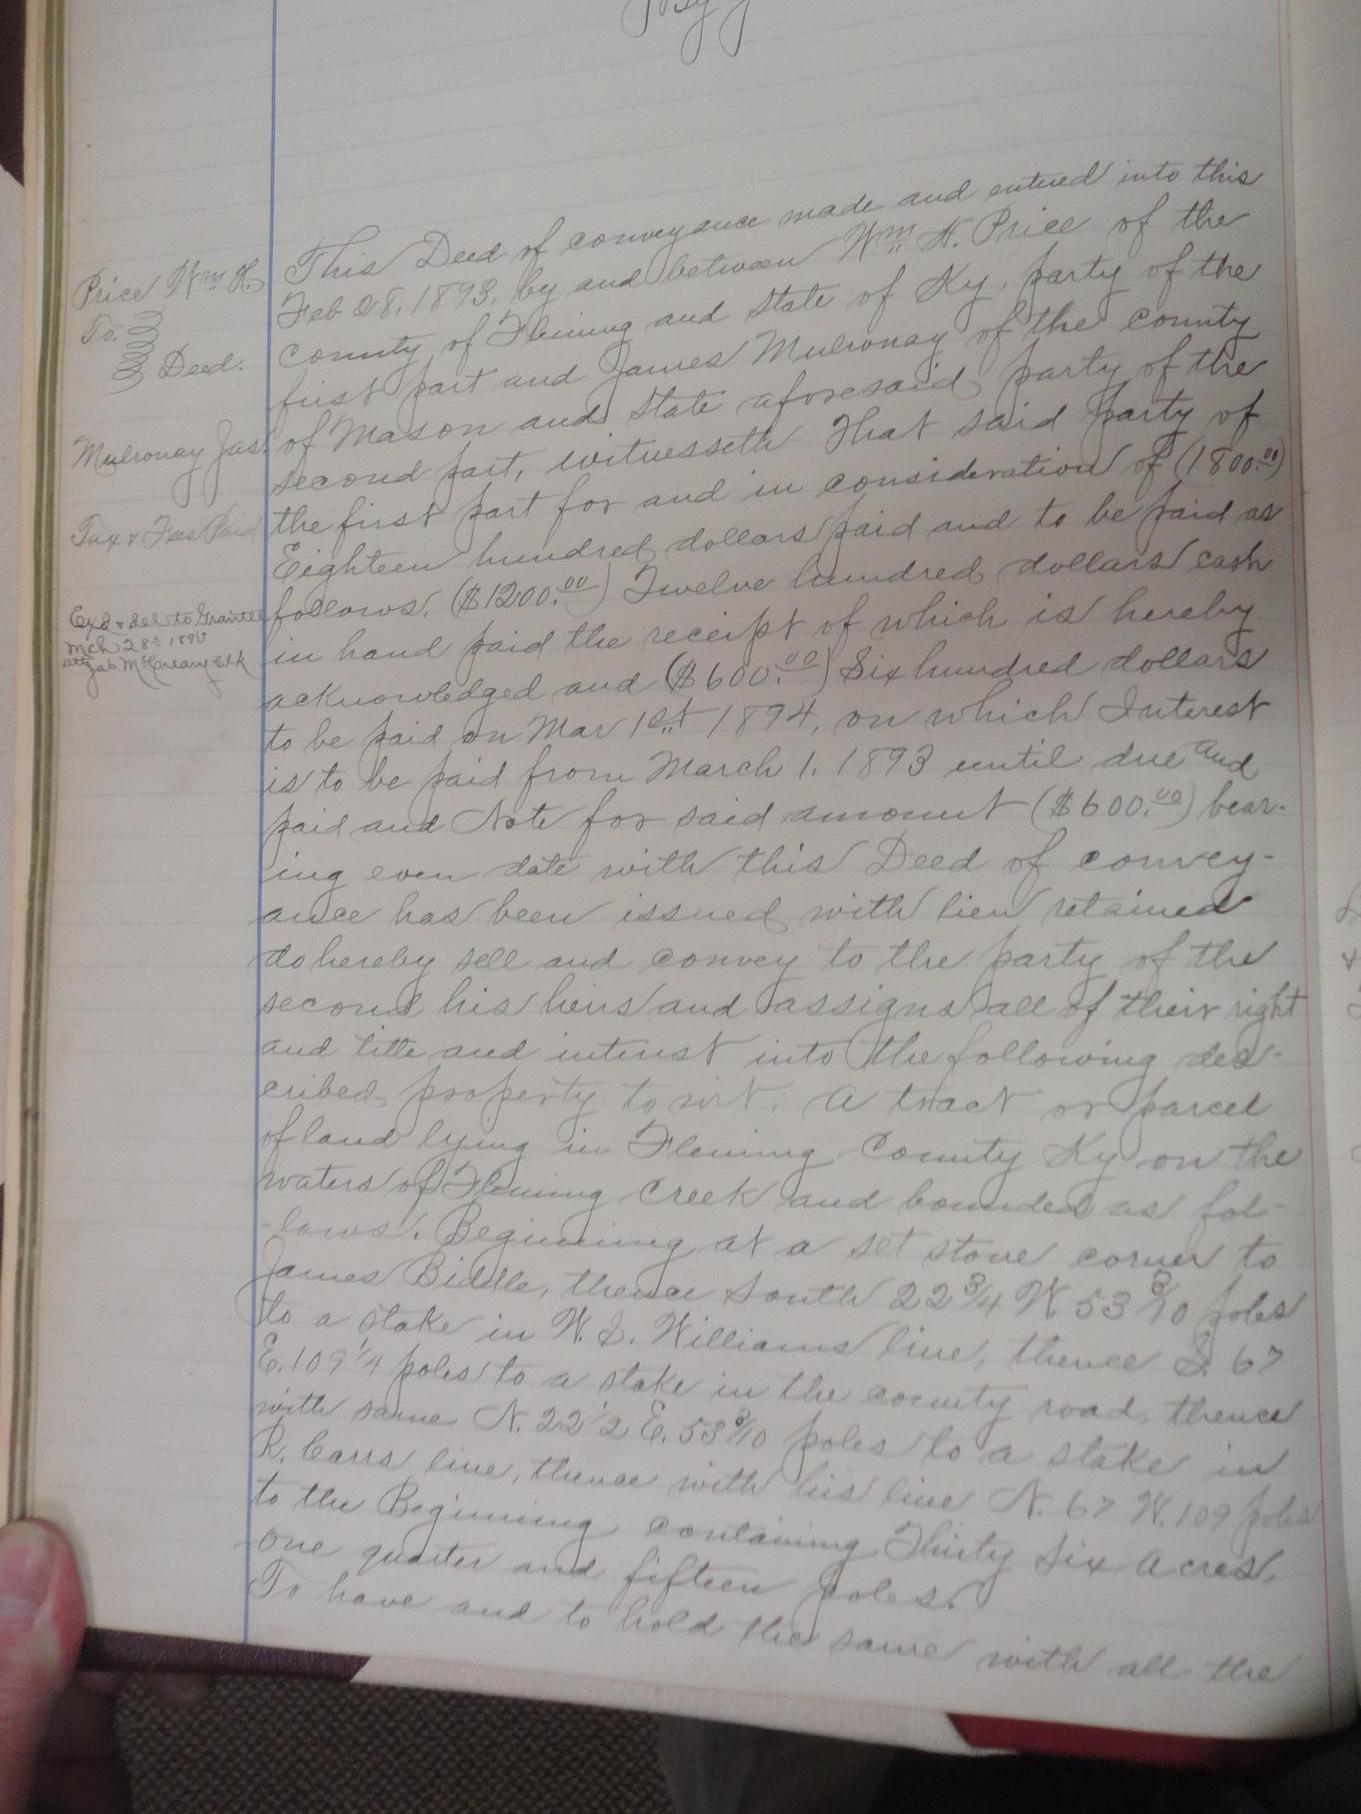 Price Wm H.
To
Deed.
Mulronay Jas.
Tax & Fees Paid
Exd & del to Grantee
Mch 28th 1896
McCreary Clk
This Deed of conveyance made and entered into this
Feb 28, 1893, by and between Wm H. Price of the
county of Fleming and state of Ky, party of the
first part and James Mulronay of the county
of Mason and state aforesaid party of the
second part, witnesseth That said party of
the first part for and in consideration of (1800.00)
Eighteen hundred dollars paid and to be paid as
follows. ($1200.00) Twelve hundred dollars cash
in hand paid the receipt of which is hereby
acknowledged and ($600.00) Six hundred dollars
to be paid on Mar 1st 1894, on which Interest
is to be paid from March 1. 1893 until due and
paid and Note for said amount ($600.00) bear-
ing even date with this Deed of convey-
ance has been issued with lien retained
do hereby sell and convey to the party of the
second his heirs and assigns all of their right
and title and interest into the following des-
cribed property to wit: A tract or parcel
of land lying in Fleming County Ky on the
waters of Fleming Creek and bounded as fol-
-lows. Beginning at a set stone corner to
James Biddle, thence South 22 3/4 W. 53 3/10 poles
to a stake in W. S. Williams line, thence S. 67
E. 109 1/4 poles to a stake in the county road, thence
with same N. 22 1/2 E. 53 3/10 poles to a stake in
R. Carrs line, thence with his line N. 67 W. 109 poles
to the Beginning containing Thirty Six Acres,
one quarter and fifteen poles.
To have and to hold the same with all the